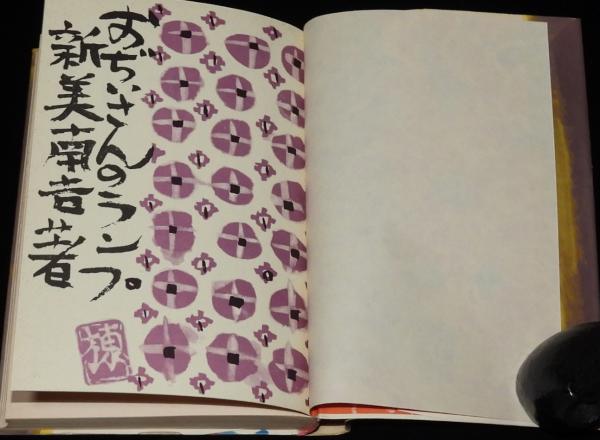 おぢいさんのランプ
新美南吉著
棟